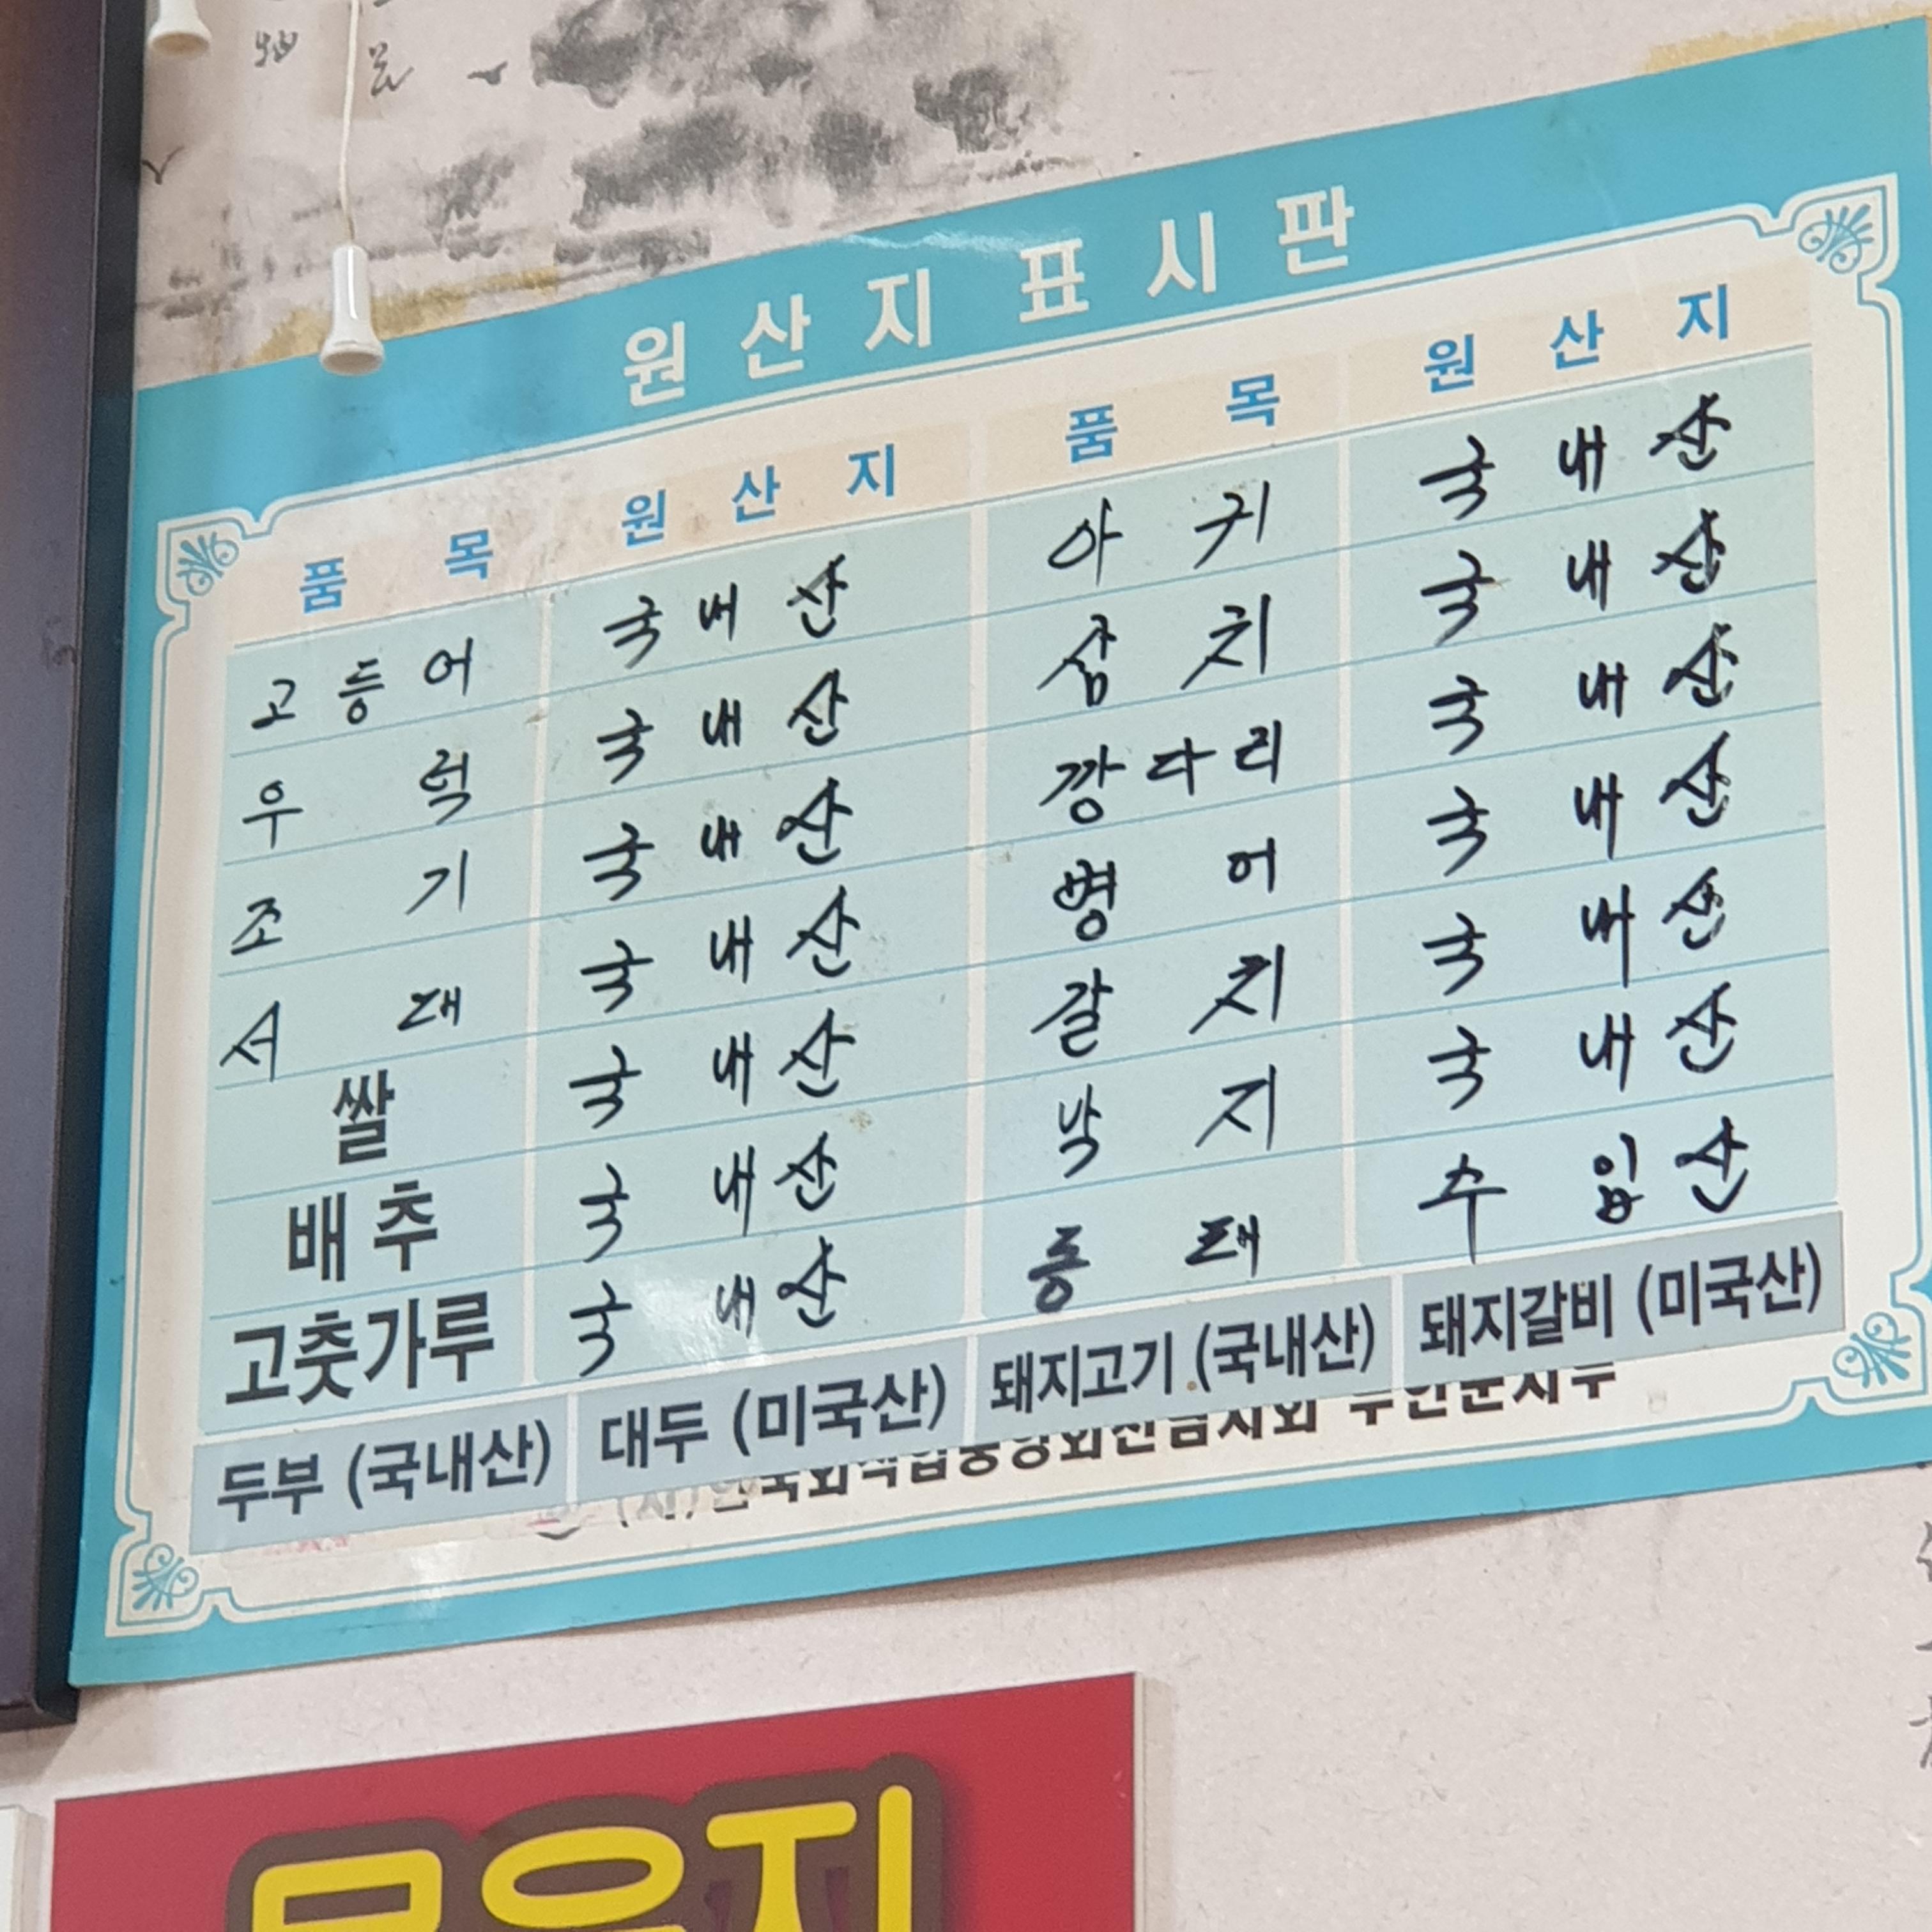 원산지 표시판
품목 원산지 품목 원산지
고등어 국내산 아귀 국내산
우럭 국내산 삼치 국내산
조기 국내산 깡다리 국내산
서대 국내산 병어 국내산
쌀 국내산 갈치 국내산
배추 국내산 낙지 국내산
고춧가루 국내산 동태 수입산
두부 (국내산) 대두 (미국산) 돼지고기 (국내산) 돼지갈비 (미국산)